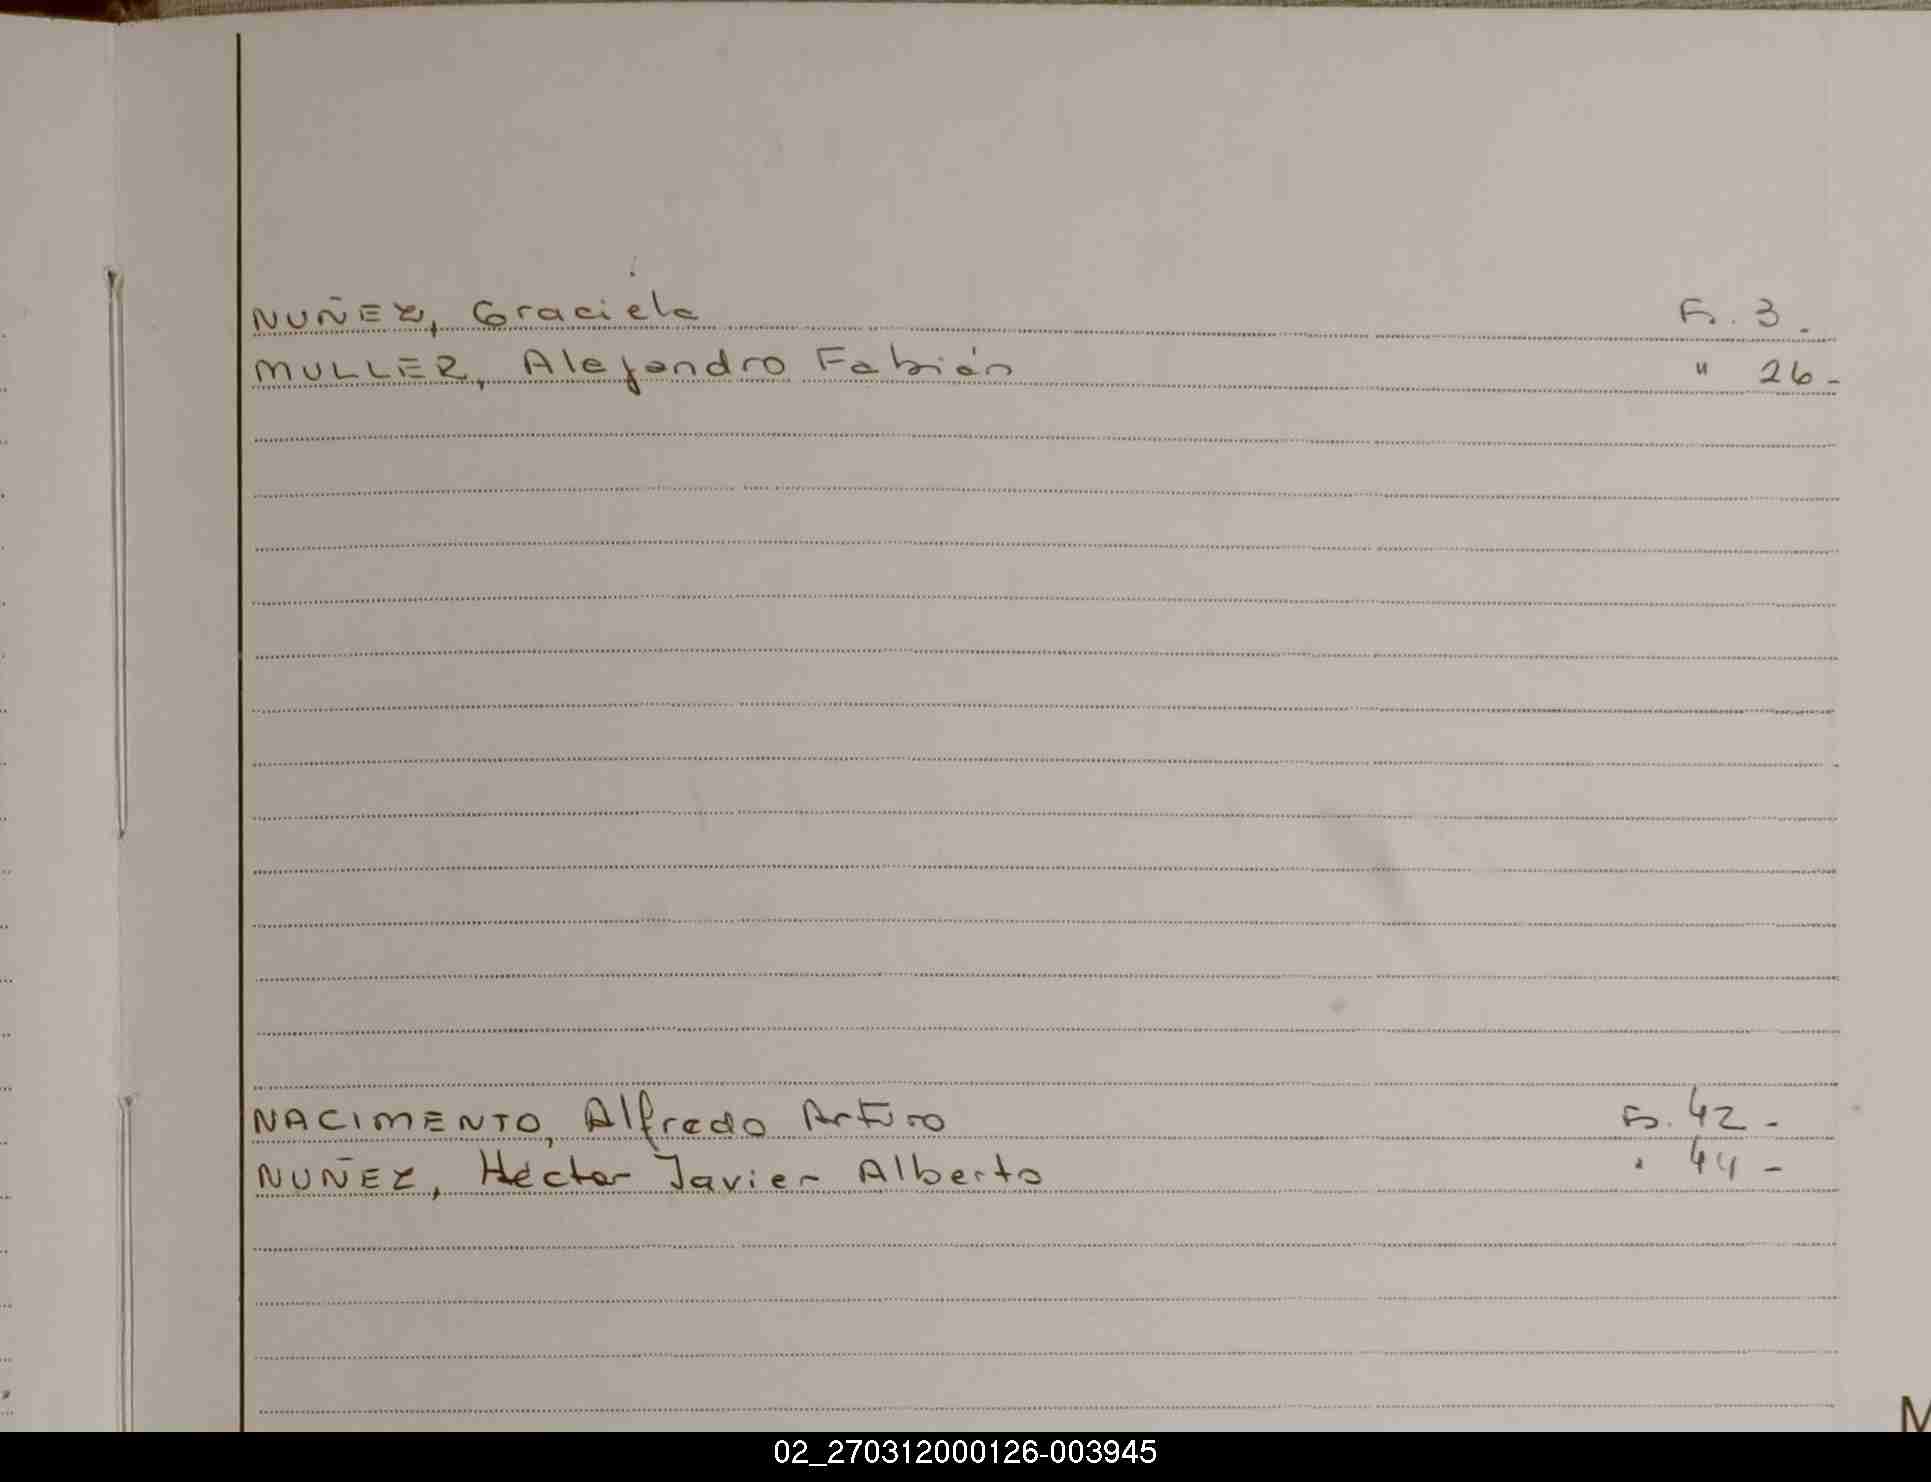 NUÑEZ, Graciela Fs. 3.
MULLER, Alejandro Fabián " 26-
NACIMENTO, Alfredo Arturo Fs. 42-
NUÑEZ, Héctor Javier Alberto " 44-
M
02_270312000126-003945